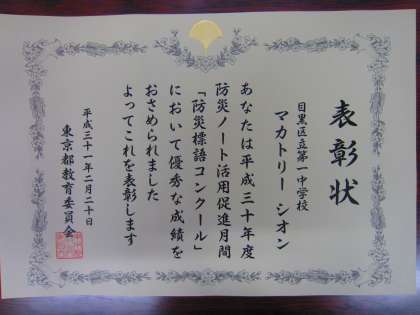 表彰状
目黒区立第一中学校
マカトリー シオン
あなたは平成三十年度
防災ノート活用促進月間
「防災標語コンクール」
において優秀な成績を
おさめられました
よってこれを表彰します
平成三十一年二月二十日
東京都教育委員会